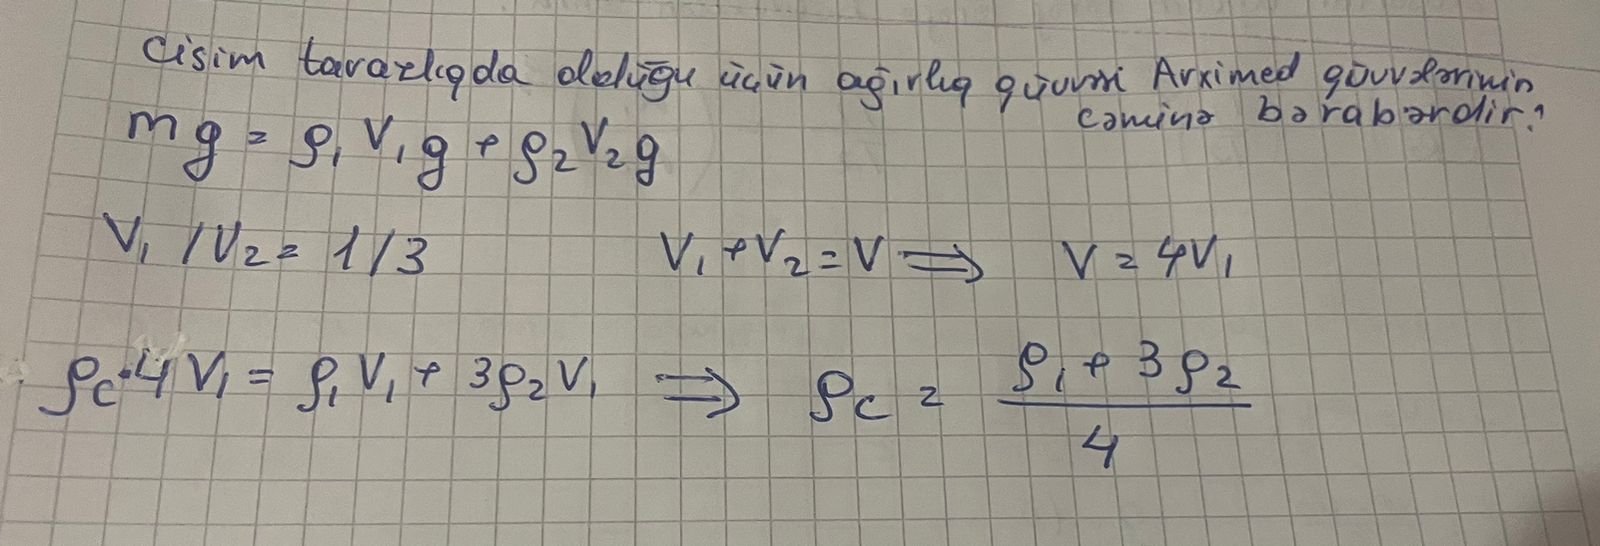 Cisim tarazlıqda olduğu üçün ağırlıq qüvvəsi Arximed qüvvələrinin
cəminə bərabərdir.
mg = ρ₁V₁g + ρ₂V₂g
V₁/V₂ = 1/3 V₁+V₂=V ⟹ V = 4V₁
ρc·4V₁ = ρ₁V₁ + 3ρ₂V₁ ⟹ ρc = (ρ₁ + 3ρ₂)/4